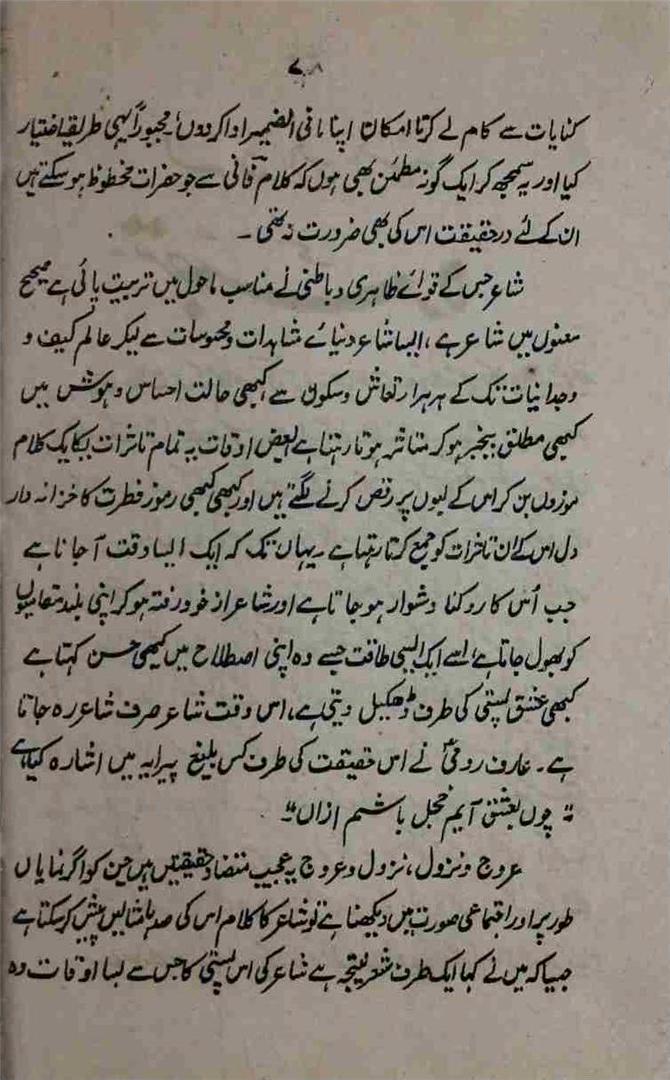 ۷۸
کنایات سے کام لے کر تا امکان اپنا مافی الضمیر ادا کر دوں، مجبوراً یہی طریقہ اختیار
کیا اور یہ سمجھ کر ایک گونہ مطمئن بھی ہوں کہ کلام فانی سے جو حضرات محظوظ ہو سکتے ہیں
ان کے لئے درحقیقت اس کی بھی ضرورت نہ تھی۔
شاعر جس کے قوائے ظاہری و باطنی نے مناسب ماحول میں تربیت پائی ہے صحیح
معنوں میں شاعر ہے، ایسا شاعر دنیائے مشاہدات و محسوسات سے لیکر عالم کیف و
وجدانیات تک کے ہر ہر ارتعاش و سکون سے کبھی حالت احساس و ہوش میں
کبھی مطلق بیخبر ہو کر متاثر ہوتا رہتا ہے بعض اوقات یہ تمام تاثرات یکایک کلام
موزوں بن کر اس کے لبوں پر رقص کرنے لگتے ہیں اور کبھی کبھی رموز فطرت کا خزانہ دار
دل اس کے ان تاثرات کو جمع کرتا رہتا ہے۔ یہاں تک کہ ایک ایسا وقت آ جاتا ہے
جب اُس کا روکنا دشوار ہو جاتا ہے اور شاعر از خود رفتہ ہو کر اپنی بلند مقامیوں
کو بھول جاتا ہے، اسے ایک ایسی طاقت جسے وہ اپنی اصطلاح میں کبھی حسن کہتا ہے
کبھی عشق پستی کی طرف ڈھکیل دیتی ہے، اس وقت شاعر صرف شاعر رہ جاتا
ہے۔ عارف رومیؒ نے اس حقیقت کی طرف کس بلیغ پیرایہ میں اشارہ کیا ہے
"چوں بعشق آیم خجل باشم ازاں"۔
عروج و نزول، نزول و عروج یہ عجیب متضاد حقیقتیں ہیں جن کو اگر نمایاں
طور پر اور اجتماعی صورت میں دیکھنا ہے تو شاعر کا کلام اس کی صدہا مثالیں پیش کر سکتا ہے
جیسا کہ میں نے کہا ایک طرف شعر نتیجہ ہے شاعر کی اس پستی کا جس سے بسا اوقات وہ